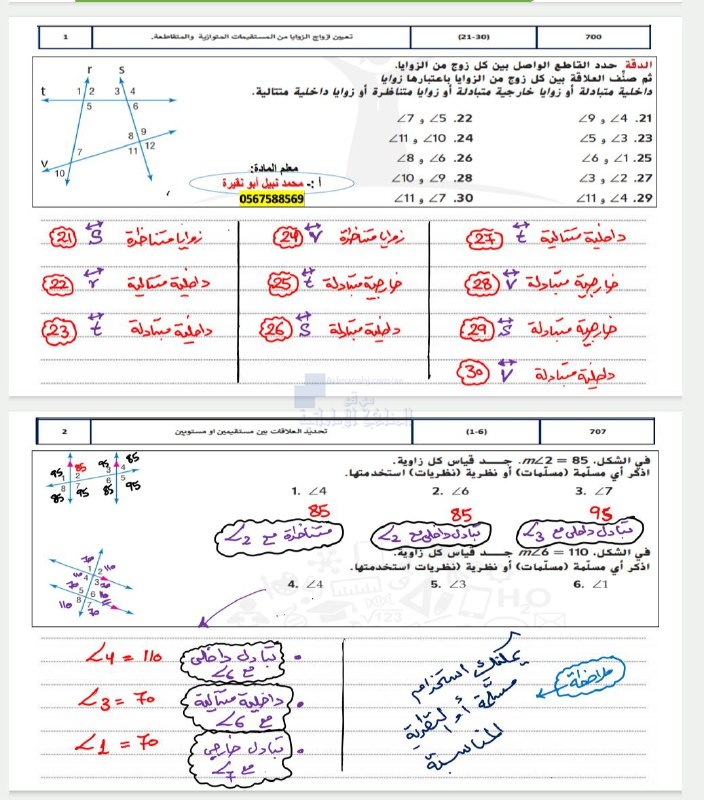 700 (21-30) تعيين أزواج الزوايا من المستقيمات المتوازية والمتقاطعة. 1
الدقة حدد القاطع الواصل بين كل زوج من الزوايا.
ثم صنّف العلاقة بين كل زوج من الزوايا باعتبارها زوايا
داخلية متبادلة أو زوايا خارجية متبادلة أو زوايا متناظرة أو زوايا داخلية متتالية.
r s
t 1 2 3 4
5 6
8 9
7 11 12
v 10
21. ∠4 و ∠9 22. ∠5 و ∠7
23. ∠3 و ∠5 24. ∠10 و ∠11
25. ∠1 و ∠6 26. ∠6 و ∠8
27. ∠2 و ∠3 28. ∠9 و ∠10
29. ∠4 و ∠11 30. ∠7 و ∠11
معلم المادة:
أ :- محمد نبيل أبو نقيرة
0567588569
21 S زوايا متناظرة
22 r داخلية متتالية
23 t داخلية متبادلة
24 v زوايا متناظرة
25 t خارجية متبادلة
26 S داخلية متبادلة
27 t داخلية متتالية
28 v خارجية متبادلة
29 S خارجية متبادلة
30 v داخلية متبادلة
موقع
المناهج الإماراتية
707 (1-6) تحديد العلاقات بين مستقيمين أو مستويين 2
في الشكل، m∠2 = 85. جـــد قياس كل زاوية.
اذكر أي مسلّمة (مسلّمات) أو نظرية (نظريات) استخدمتها.
95 85 95 85
1 2 3 4
8 7 6 5
85 95 85 95
1. ∠4 2. ∠6 3. ∠7
85 85 95
متناظرة مع ∠2 تبادل داخلي مع ∠2 تبادل داخلي مع ∠3
في الشكل، m∠6 = 110 جـــد قياس كل زاوية.
اذكر أي مسلّمة (مسلّمات) أو نظرية (نظريات) استخدمتها.
70 110
1 2
4 3
5 6
8 7
110 70
4. ∠4 5. ∠3 6. ∠1
∠4 = 110 تبادل داخلي مع ∠6
∠3 = 70 داخلية متتالية مع ∠6
∠1 = 70 تبادل خارجي مع ∠7
ملاحظة
يمكنك استخدام
مسلّمة أو النظرية
المناسبة